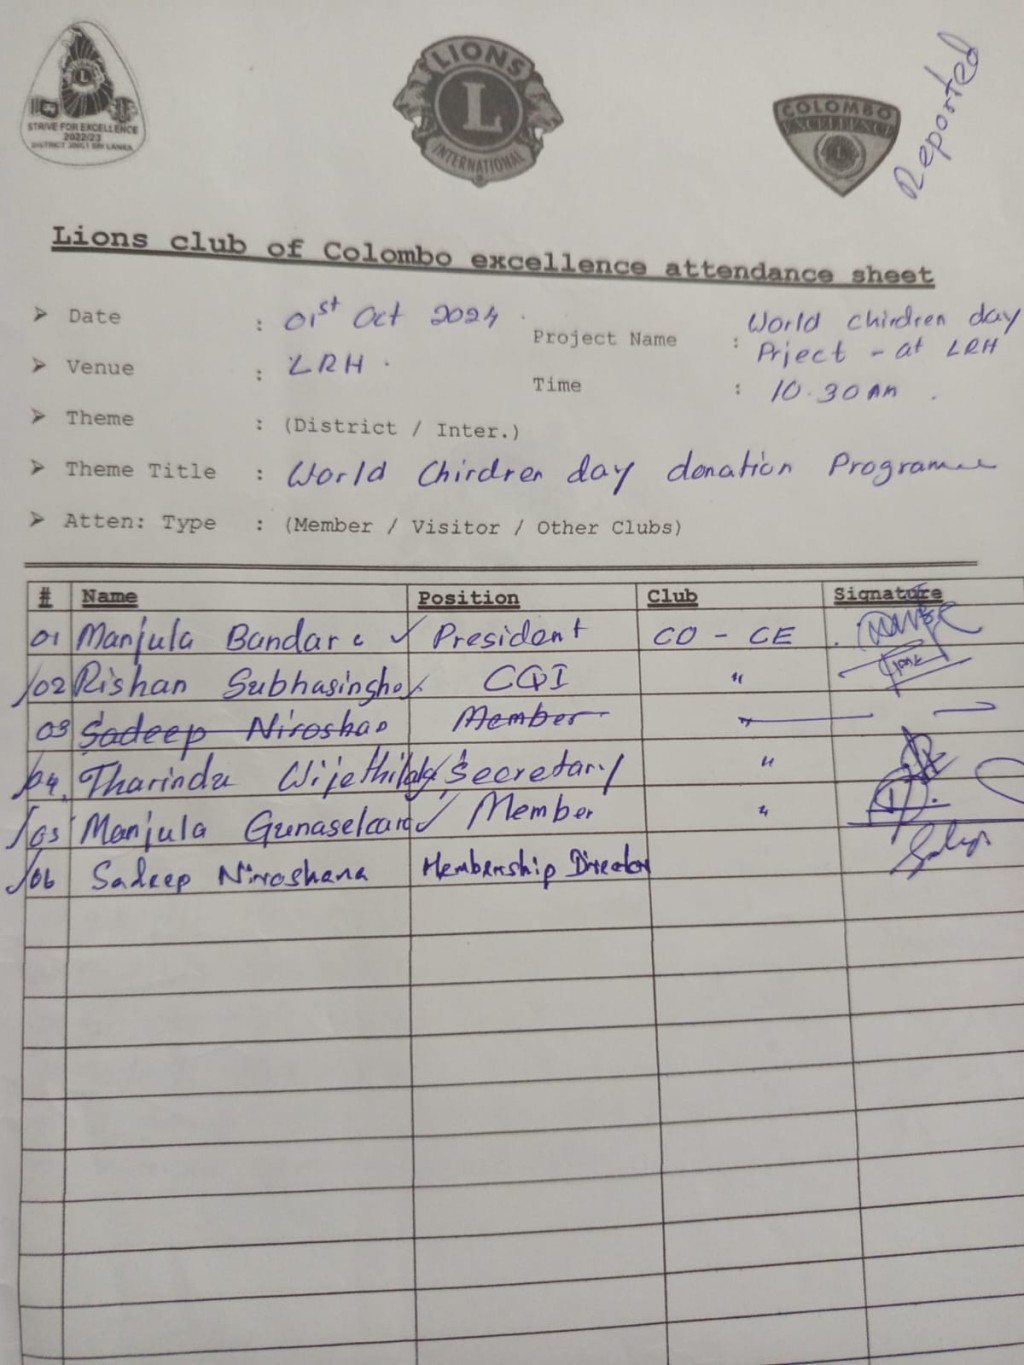 STRIVE FOR EXCELLENCE
2022/23
LIONS
L
INTERNATIONAL
COLOMBO
EXCELLENCE
Reported
Lions club of Colombo excellence attendance sheet
➤ Date : 01st Oct 2024 . Project Name : World chirdren day
Prject - at LRH
➤ Venue : LRH . Time : 10.30 am .
➤ Theme : (District / Inter.)
➤ Theme Title : World Chirdren day donation Programme
➤ Atten: Type : (Member / Visitor / Other Clubs)
# Name Position Club Signature
01 Manjula Bandara ✓ President CO - CE
02 Rishan Subhasingha CQI "
03 Sadeep Niroshan Member "
04. Tharindu Wijethilaka Secretary "
05 Manjula Gunasekara ✓ Member "
06 Sadeep Niroshana Membership Director